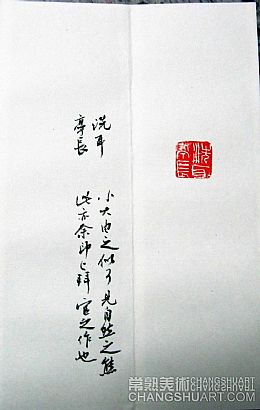 洗耳
亭長
洗耳
亭長
小大由之似可见自然之態
此亦余印拜官之作也
常熟美術
CHANGSHUART.COM